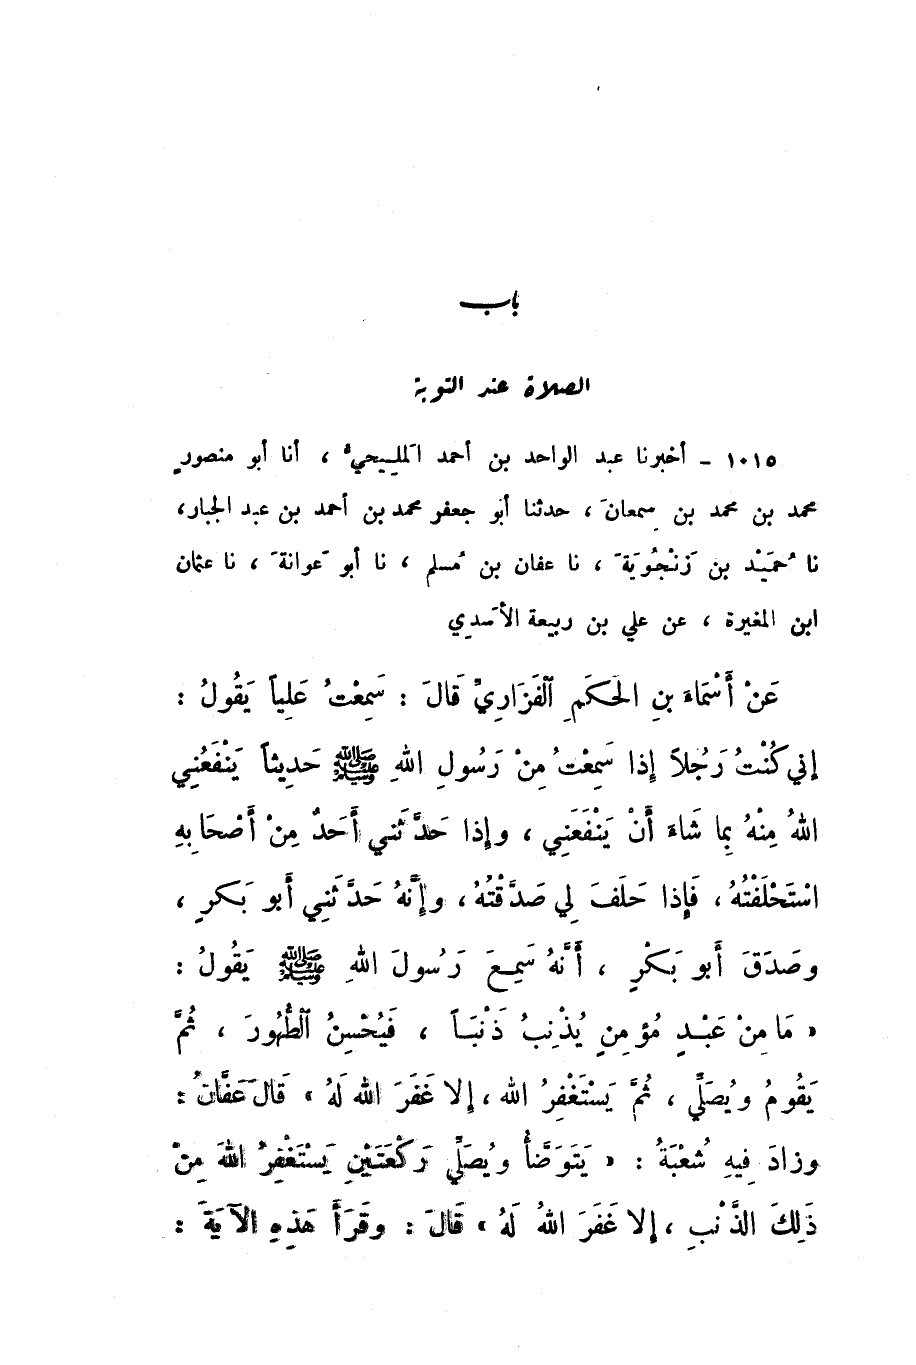 باب
الصلاة عند التوبة
١٠١٥ - أخبرنا عبد الواحد بن أحمد المَلِيحيُّ ، أنا أبو منصورٍ
محمد بن محمد بن سِمعانَ ، حدثنا أبو جعفر محمد بن أحمد بن عبد الجبار،
نا حُمَيْد بن زَنْجُوَيَةَ ، نا عفان بن مُسلم ، نا أبو عَوانةَ ، نا عثمان
ابن المغيرة ، عن علي بن ربيعة الأسَدي
عَنْ أَسْمَاءَ بنِ الحَكَمِ اٱلْفَزَارِيِّ قَالَ : سَمِعْتُ عَلِياً يَقُولُ :
إني كُنْتُ رَجُلاً إِذا سَمِعْتُ مِنْ رَسُولِ اللهِ ﷺ حَدِيثاً يَنْفَعُنِي
اللهُ مِنْهُ بِما شَاءَ أَنْ يَنْفَعَنِي ، وإِذا حَدَّثَني أَحَدٌ مِنْ أَصْحَابِهِ
اسْتَحْلَفْتُهُ، فَإِذا حَلَفَ لِي صَدَّقْتُهُ، وإِنَّهُ حَدَّثَنِي أَبو بَكرٍ ،
وصَدَقَ أَبو بَكْرٍ ، أَنَّهُ سَمِعَ رَسُولَ اللهِ ﷺ يَقُولُ :
« مَا مِنْ عَبْدٍ مُؤمِنٍ يُذْنِبُ ذَنْبَاً ، فَيُحْسِنُ ٱلطُّهُورَ ، ثُمَّ
يَقُومُ ويُصَلِّي ، ثُمَّ يَسْتَغْفِرُ الله ، إِلا غَفَرَ الله لَهُ » قَالَ عَفَّانُ :
وزادَ فِيهِ شُعْبَةُ : « يَتَوَضَّأُ ويُصَلِّي رَكْعَتَيْنِ يَسْتَغْفِرُ اللهَ مِنْ
ذَلِكَ الذَّنْبِ ، إِلا غَفَرَ اللهُ لَهُ » قَالَ : وقَرَأَ هَذِهِ الآيَةَ :